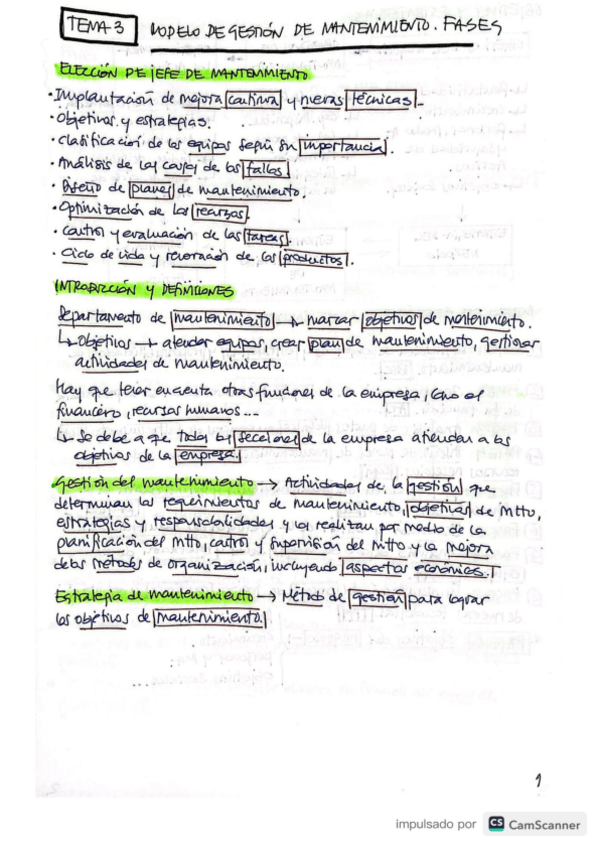 TEMA 3 MODELO DE GESTIÓN DE MANTENIMIENTO. FASES
ELECCIÓN DE JEFE DE MANTENIMIENTO
· Implantación de mejora continua y nuevas técnicas.
· Objetivos y estrategias.
· Clasificación de los equipos según su importancia.
· Análisis de las causas de los fallos
· Diseño de planes de mantenimiento.
· Optimización de los recursos.
· Control y evaluación de las tareas.
· Ciclo de vida y renovación de los productos.
INTRODUCCIÓN Y DEFINICIONES
Departamento de mantenimiento → marcar objetivos de mantenimiento.
↳ Objetivos → atender equipos, crear plan de mantenimiento, gestionar
actividades de mantenimiento.
Hay que tener en cuenta otras funciones de la empresa, como el
financiero, recursos humanos...
↳ Se debe a que todas las secciones de la empresa atiendan a los
objetivos de la empresa.
Gestión del mantenimiento → Actividades de la gestión que
determinan los requerimientos de mantenimiento, objetivos de Mtto,
estrategias y responsabilidades y las realizan por medio de la
planificación del Mtto, control y supervisión del Mtto y la mejora
de los métodos de organización, incluyendo aspectos económicos.
Estrategia de mantenimiento → Método de gestión para lograr
los objetivos de mantenimiento.
1
impulsado por CS CamScanner